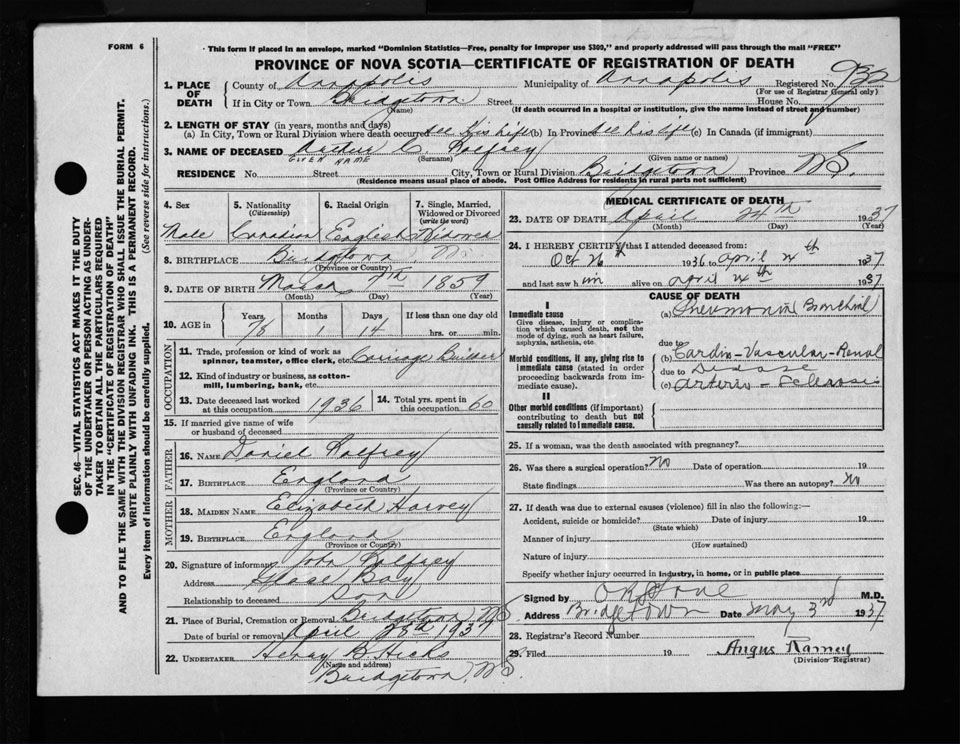 FORM 6
This form if placed in an envelope, marked "Dominion Statistics—Free, penalty for improper use $300," and properly addressed will pass through the mail "FREE"
PROVINCE OF NOVA SCOTIA—CERTIFICATE OF REGISTRATION OF DEATH
1. PLACE OF DEATH County of Annapolis Municipality of Annapolis Registered No. 932
(For use of Registrar General only)
If in City or Town Bridgetown Street House No.
(Name) (If death occurred in a hospital or institution, give the name instead of street and number)
2. LENGTH OF STAY (in years, months and days)
(a) In City, Town or Rural Division where death occurred all his life (b) In Province all his life (c) In Canada (if immigrant)
3. NAME OF DECEASED Arthur C. Palfrey
GIVEN NAME (Surname) (Given name or names)
RESIDENCE No. Street City, Town or Rural Division Bridgetown Province N.S.
(Residence means usual place of abode. Post Office Address for residents in rural parts not sufficient)
4. Sex 5. Nationality (Citizenship) 6. Racial Origin 7. Single, Married, Widowed or Divorced (write the word)
Male Canadian English Widowed
8. BIRTHPLACE Bridgetown N.S.
(Province or Country)
9. DATE OF BIRTH March 7th 1859
(Month) (Day) (Year)
10. AGE in Years Months Days If less than one day
78 1 14 hrs. or min.
OCCUPATION
11. Trade, profession or kind of work as spinner, teamster, office clerk, etc. Carriage Builder
12. Kind of industry or business, as cotton-mill, lumbering, bank, etc.
13. Date deceased last worked at this occupation 1936 14. Total yrs. spent in this occupation 60
15. If married give name of wife or husband of deceased
FATHER
16. NAME Daniel Palfrey
17. BIRTHPLACE England
(Province or Country)
MOTHER
18. MAIDEN NAME Elizabeth Harvey
19. BIRTHPLACE England
(Province or Country)
20. Signature of informant John Palfrey
Address Glace Bay
Relationship to deceased Son
21. Place of Burial, Cremation or Removal Bridgetown N.S.
Date of burial or removal April 28th 1937
22. UNDERTAKER Henry B. Hicks
(Name and address)
Bridgetown, N.S.
MEDICAL CERTIFICATE OF DEATH
23. DATE OF DEATH April 24th 1937
(Month) (Day) (Year)
24. I HEREBY CERTIFY that I attended deceased from:
Oct 26th 1936 to April 24th 1937
and last saw him alive on April 24th 1937
CAUSE OF DEATH
I
Immediate cause (a) Pneumonia Bronchial
Give disease, injury or complication which caused death, not the mode of dying, such as heart failure, asphyxia, asthenia, etc.
due to
Morbid conditions, if any, giving rise to immediate cause (stated in order proceeding backwards from immediate cause).
(b) Cardio-Vascular-Renal
due to Disease
(c) Arterio-Sclerosis
II
Other morbid conditions (if important) contributing to death but not causally related to immediate cause.
25. If a woman, was the death associated with pregnancy?
26. Was there a surgical operation? No Date of operation 19
State findings Was there an autopsy? No
27. If death was due to external causes (violence) fill in also the following:—
Accident, suicide or homicide? Date of injury 19
(State which)
Manner of injury
(How sustained)
Nature of injury
Specify whether injury occurred in industry, in home, or in public place
Signed by M.D.
Address Bridgetown Date May 3rd 1937
28. Registrar's Record Number
29. Filed 19 Angus Ramey
(Division Registrar)
SEC. 46—VITAL STATISTICS ACT MAKES IT THE DUTY
OF THE UNDERTAKER OR PERSON ACTING AS UNDER-
TAKER TO OBTAIN ALL THE PARTICULARS REQUIRED
IN THE "CERTIFICATE OF REGISTRATION OF DEATH"
AND TO FILE THE SAME WITH THE DIVISION REGISTRAR WHO SHALL ISSUE THE BURIAL PERMIT.
WRITE PLAINLY WITH UNFADING INK. THIS IS A PERMANENT RECORD.
Every item of information should be carefully supplied. (See reverse side for instructions.)